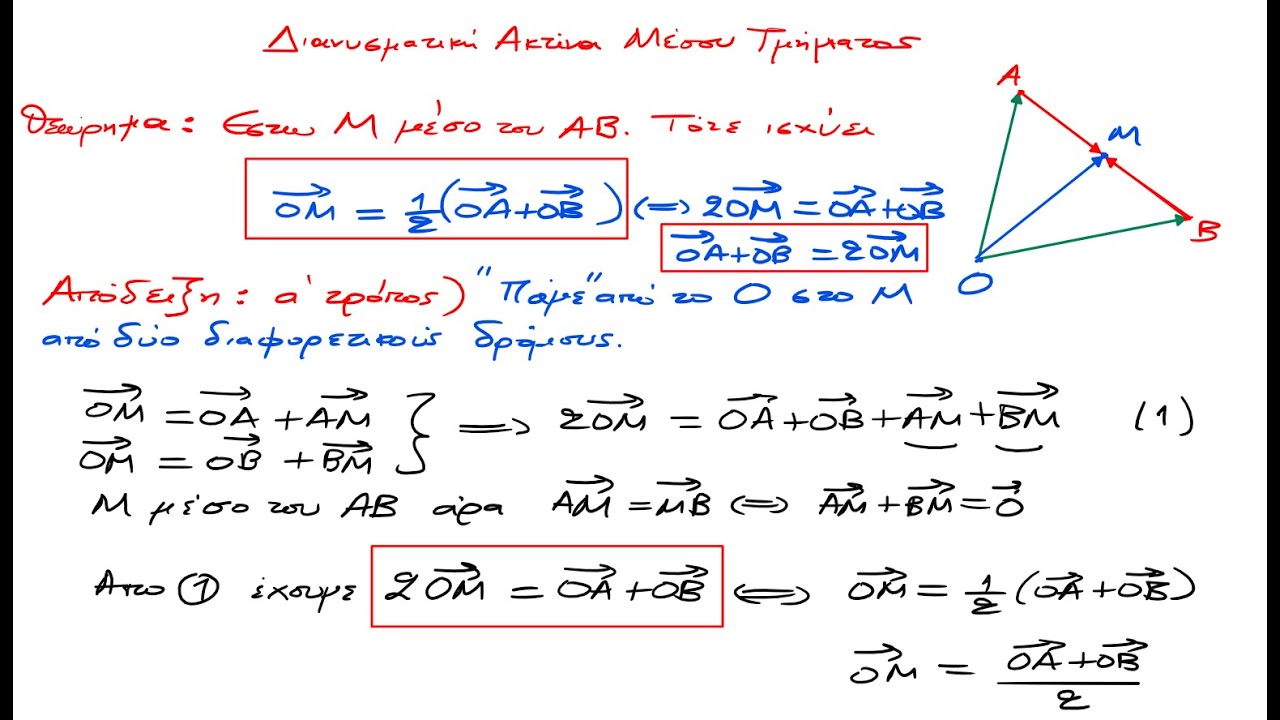 Διανυσματική Ακτίνα Μέσου Τμήματος
Θεώρημα: Έστω Μ μέσο του ΑΒ. Τότε ισχύει
$\overrightarrow{OM} = \frac{1}{2}(\overrightarrow{OA}+\overrightarrow{OB}) \Leftrightarrow 2\overrightarrow{OM} = \overrightarrow{OA}+\overrightarrow{OB}$
$\overrightarrow{OA}+\overrightarrow{OB} = 2\overrightarrow{OM}$
A
M
B
O
Απόδειξη: α' τρόπος) "Πάμε" από το Ο στο Μ
από δύο διαφορετικούς δρόμους.
$\left.\begin{array}{l}\overrightarrow{OM} = \overrightarrow{OA} + \overrightarrow{AM} \\ \overrightarrow{OM} = \overrightarrow{OB} + \overrightarrow{BM}\end{array}\right\} \Rightarrow 2\overrightarrow{OM} = \overrightarrow{OA}+\overrightarrow{OB}+\overrightarrow{AM}+\overrightarrow{BM} \quad (1)$
Μ μέσο του ΑΒ άρα $\overrightarrow{AM} = \overrightarrow{MB} \Leftrightarrow \overrightarrow{AM}+\overrightarrow{BM} = \vec{0}$
Απο ① έχουμε $2\overrightarrow{OM} = \overrightarrow{OA}+\overrightarrow{OB} \Leftrightarrow \overrightarrow{OM} = \frac{1}{2}(\overrightarrow{OA}+\overrightarrow{OB})$
$\overrightarrow{OM} = \frac{\overrightarrow{OA}+\overrightarrow{OB}}{2}$